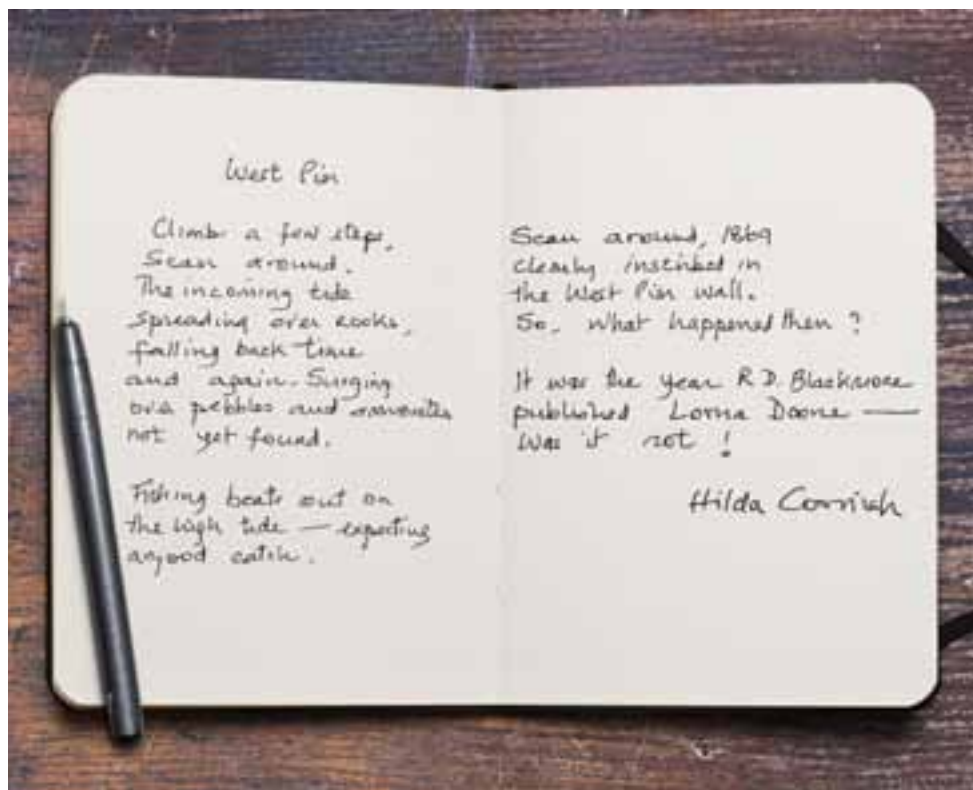 West Pier
Climb a few steps,
Scan around.
The incoming tide
spreading over rocks,
falling back time
and again. Surging
over pebbles and ammonites
not yet found.
Fishing boats out on
the high tide — expecting
a good catch.
Scan around, 1869
clearly inscribed in
the West Pier wall.
So, what happened then?
It was the year R.D. Blackmore
published Lorna Doone —
Was it not!
Hilda Cornish